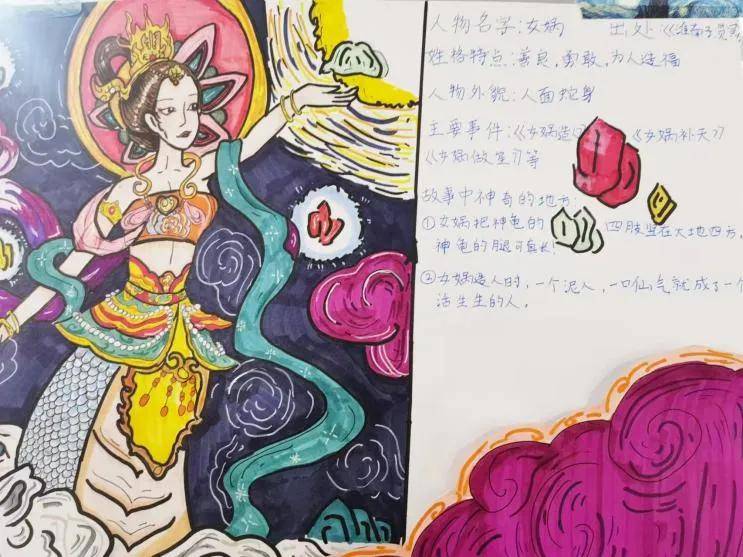 人物名字:女娲 出处:《淮南子
性格特点:善良,勇敢,为人造福
人物外貌:人面蛇身
主要事件:《女娲造 《女娲补天》
《女娲做笙》等
故事中神奇的地方:
①女娲把神龟的 四肢竖在大地四方,
神龟的腿可真长!
②女娲造人时,一个泥人,一口仙气就成了一个
活生生的人。